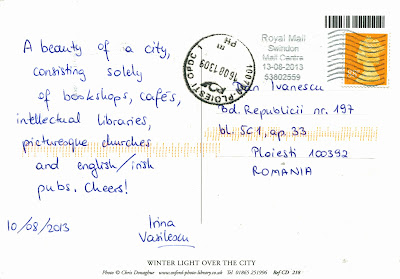 A beauty of a city,
consisting solely
of bookshops, cafés,
intellectual libraries,
picturesque churches
and english/irish
pubs. Cheers!
10/08/2013
Irina
Vasilescu
Royal Mail
Swindon
Mail Centre
13-08-2013
53802559
PLOIESTI OPDC 1
Ivanescu
bd. Republicii nr. 197
bl. 5C1, ap. 33
Ploiesti 100392
ROMANIA
WINTER LIGHT OVER THE CITY
Photo © Chris Donaghue www.oxford-photo-library.co.uk Tel 01865 251996 Ref CD 218